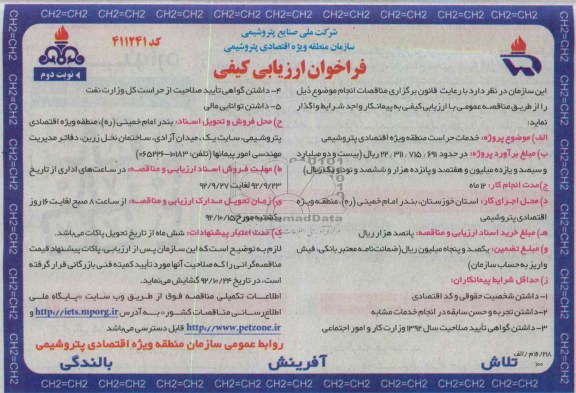 CH2=CH2 CH2=CH2 CH2=CH2 CH2=CH2 CH2=CH2 CH2=CH2 CH2=CH2
شرکت ملی صنایع پتروشیمی
سازمان منطقه ویژه اقتصادی پتروشیمی
کد ۴۱۱۲۴۱
نوبت دوم
فراخوان ارزیابی کیفی
این سازمان در نظر دارد با رعایت قانون برگزاری مناقصات انجام موضوع ذیل
را از طریق مناقصه عمومی با ارزیابی کیفی به پیمانکار واجد شرایط واگذار
نماید:
الف) موضوع پروژه: خدمات حراست منطقه ویژه اقتصادی پتروشیمی
ب) مبلغ برآورد پروژه: در حدود ۶۹۱ / ۷۱۵ / ۳۱۱ / ۲۲ ریال (بیست و دو میلیارد
و سیصد و یازده میلیون و هفتصد و پانزده هزار و ششصد و نود و یک ریال)
ج) مدت انجام کار: ۱۲ ماه
د) محل اجرای کار: استان خوزستان، بندر امام خمینی (ره)، منطقه ویژه
اقتصادی پتروشیمی
هـ) مبلغ خرید اسناد ارزیابی و مناقصه: پانصد هزار ریال
و) مبلغ تضمین: یکصد و پنجاه میلیون ریال (ضمانت‌نامه معتبر بانکی، فیش
واریز به حساب سازمان)
ز) حداقل شرایط پیمانکاران:
۱- داشتن شخصیت حقوقی و کد اقتصادی
۲- داشتن تجربه و حسن سابقه در انجام خدمات مشابه
۳- داشتن گواهی تأیید صلاحیت سال ۱۳۹۲ وزارت کار و امور اجتماعی
۴- داشتن گواهی تأیید صلاحیت از حراست کل وزارت نفت
۵- داشتن توانایی مالی
ح) محل فروش و تحویل اسناد: بندر امام خمینی (ره)، منطقه ویژه اقتصادی
پتروشیمی، سایت یک، میدان آزادی، ساختمان نخل زرین، دفاتر مدیریت
مهندسی امور پیمانها (تلفن:
ط) مهلت فروش اسناد ارزیابی و مناقصه: در ساعت‌های اداری از تاریخ
۹۲/۹/۲۳ لغایت ۹۲/۹/۲۷
ی) زمان تحویل مدارک ارزیابی و مناقصه: از ساعت ۸ صبح لغایت ۱۶ روز
یکشنبه مورخ ۹۲/۱۰/۱۵
ک) مدت اعتبار پیشنهادات: شش ماه از تاریخ تحویل پاکات می‌باشد.
لازم به توضیح است که این سازمان پس از ارزیابی، پاکات پیشنهاد قیمت
مناقصه‌گرانی را که صلاحیت آنها مورد تأیید کمیته فنی بازرگانی قرار گرفته
است، در تاریخ ۹۲/۱۰/۲۴ گشایش می‌نماید.
اطلاعات تکمیلی مناقصه فوق از طریق وب سایت «پایگاه ملی
اطلاع‌رسانی مناقصات کشور» به آدرس http://iets.mporg.ir و
http://www.petzone.ir قابل دسترسی می‌باشد
روابط عمومی سازمان منطقه ویژه اقتصادی پتروشیمی
تلاش آفرینش بالندگی
CH2=CH2 CH2=CH2 CH2=CH2 CH2=CH2 CH2=CH2 CH2=CH2 CH2=CH2